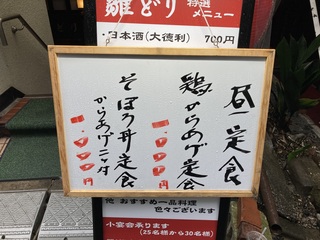 雛どり 特選メニュー
・日本酒(大徳利) 700円
昼定食
鶏からあげ定食
そぼろ丼定食
からあげ二ヶ付
他 おすすめ一品料理
色々ございます
小宴会承ります
(25名様から30名様)